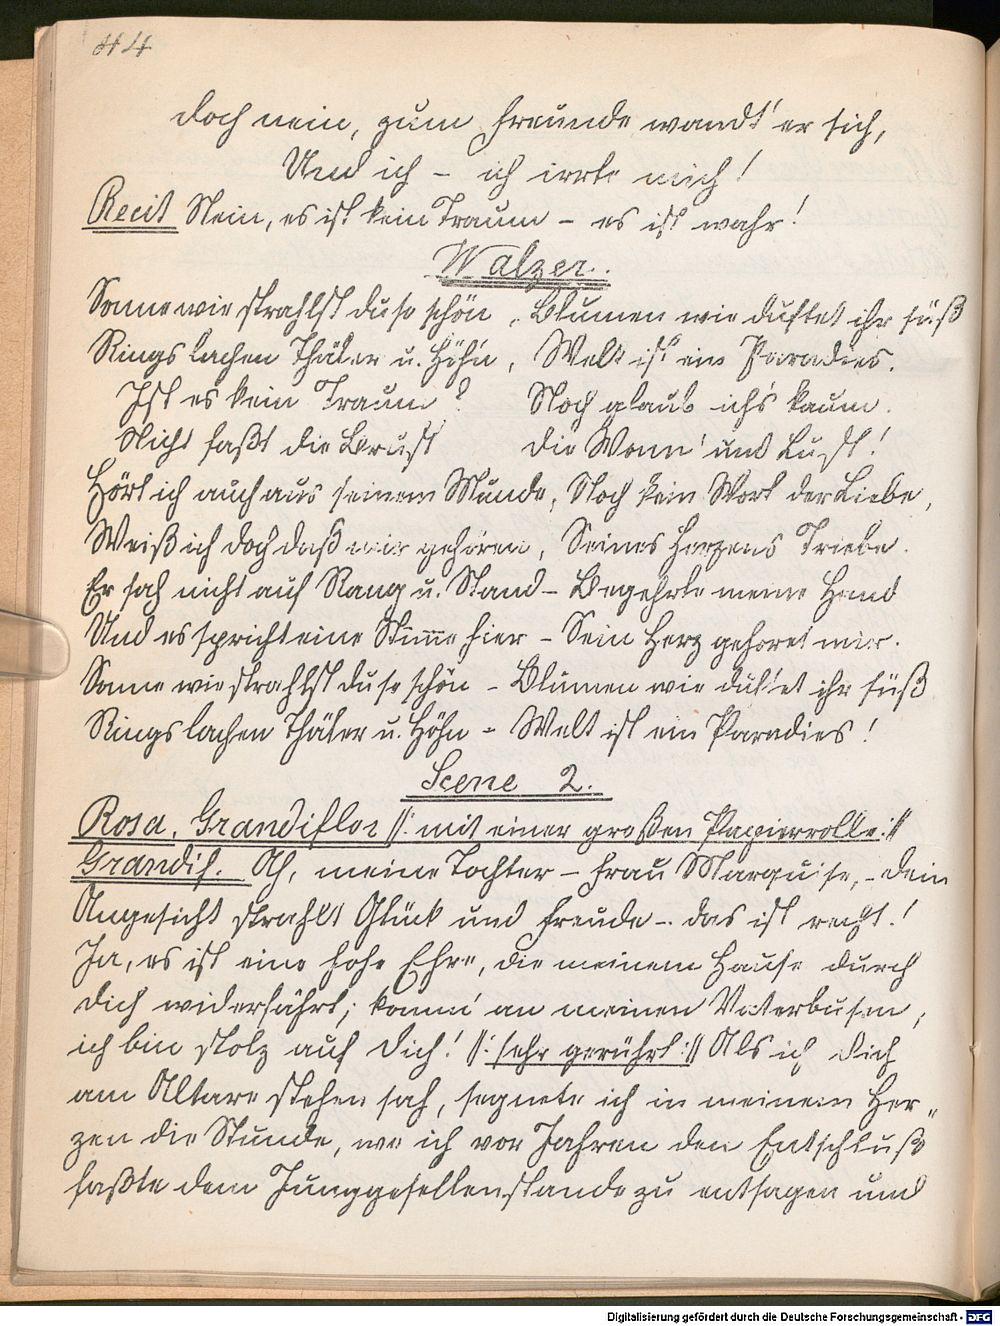 44
Doch nein, zum Freunde wandt' er sich,
Und ich – ich irrte mich!
Recit Nein, es ist kein Traum – es ist wahr!
Walzer.
Sonne wie strahlst du so schön, Blumen wie duftet ihr süß
Rings lachen Thäler u. Höh'n, Welt ist ein Paradies.
Ist es kein Traum? Noch glaub ich's kaum.
Nicht faßt die Brust die Wonn' und Lust!
Hört ich auch aus seinem Munde, Noch kein Wort der Liebe,
Weiß ich doch daß mir gehören, Seines Herzens Triebe.
Er sah nicht auf Rang u. Stand – Begehrte meine Hand
Und es spricht eine Stimme hier – Sein Herz gehöret mir.
Sonne wie strahlst du so schön – Blumen wie duftet ihr süß
Rings lachen Thäler u. Höhn – Welt ist ein Paradies!
Scene 2.
Rosa, Grandiflor //: mit einer großen Papierrolle ://
Grandif. Ah, meine Tochter – Frau Marquise, – Dein
Angesicht strahlt Glück und Freude – das ist recht!
Ja, es ist eine hohe Ehre, die meinem Hause durch
Dich widerfährt; komm' an meinen Vaterbusen,
ich bin stolz auf Dich! //: sehr gerührt :// Als ich Dich
am Altare stehen sah, segnete ich in meinem Her-
zen die Stunde, wo ich vor Jahren den Entschluß
faßte dem Junggesellenstande zu entsagen und
Digitalisierung gefördert durch die Deutsche Forschungsgemeinschaft - DFG